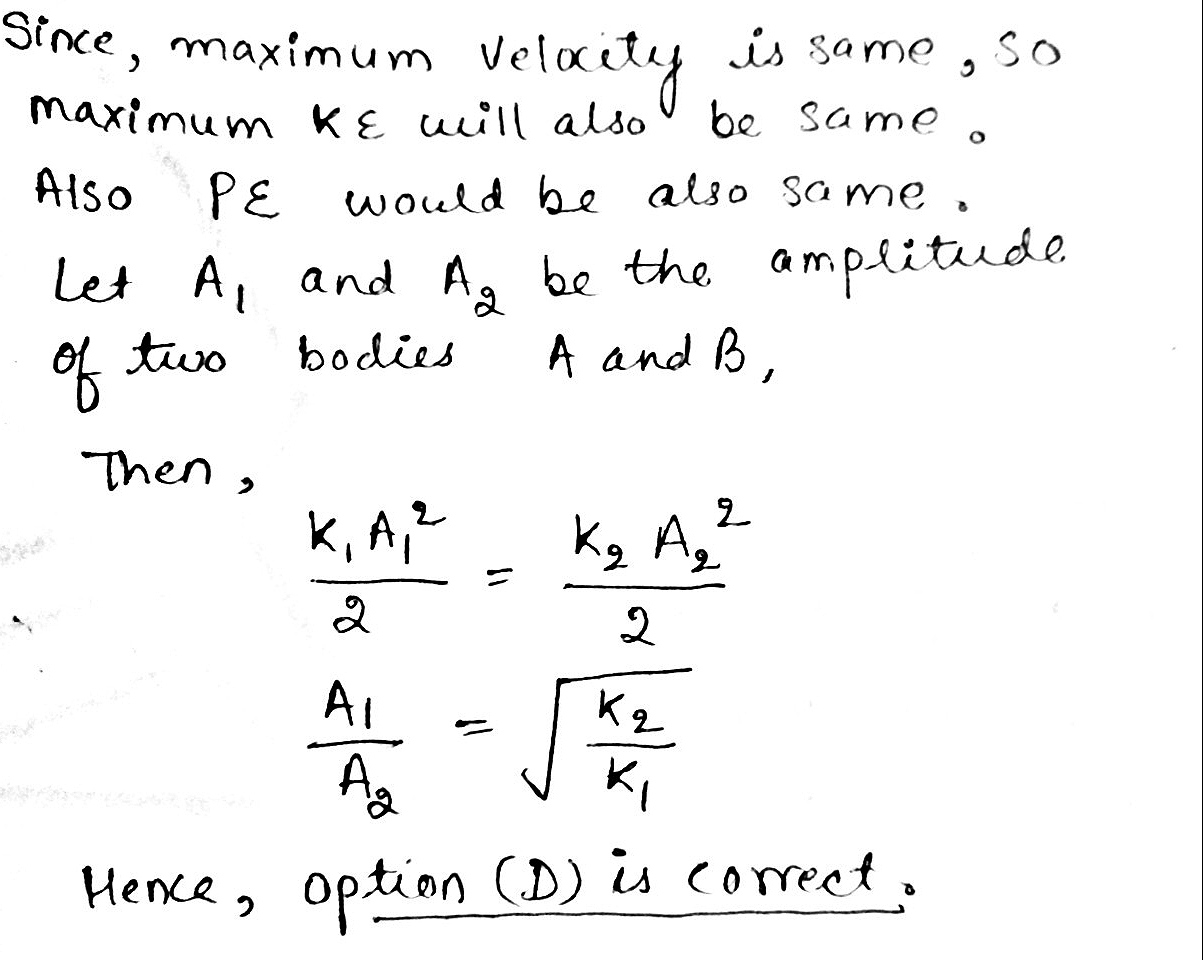 Since, maximum velocity is same, so
maximum KE will also be same.
Also PE would be also same.
Let A₁ and A₂ be the amplitude
of two bodies A and B,
Then,
K₁A₁²/2 = K₂A₂²/2
A₁/A₂ = √(K₂/K₁)
Hence, option (D) is correct.